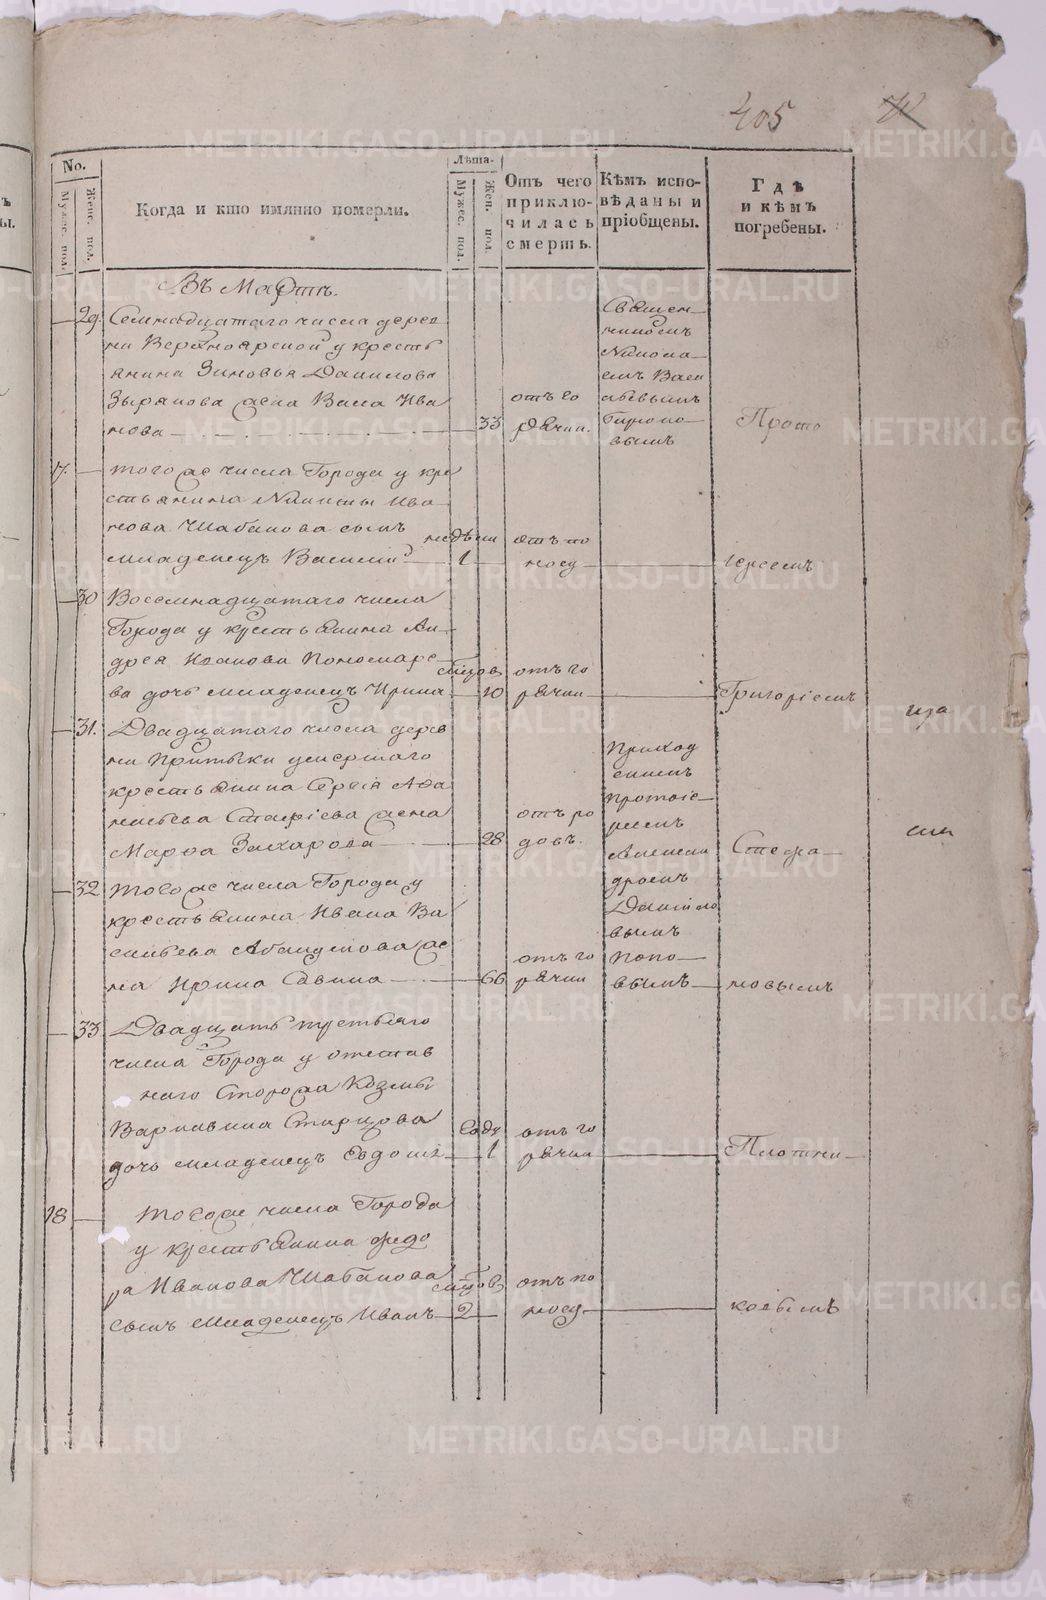 405
No.
Мужес. пол.
Женс. пол.
Когда и кто имянно померли.
Лѣта.
Мужес. пол.
Жен. пол.
Отъ чего приклю-
чилась смерть.
Кѣмъ испо-
вѣданы и
пріобщены.
Гдѣ
и кѣмъ
погребены.
Въ Мартѣ.
29. Семнадцатаго числа дерев
ни Верхноярской у кресть
янина Зиновья Данилова
Зырянова жена Васса Ива
нова 33 отъ го
рячки.
Священ-
никомъ
Николаемъ
Поповымъ
Прото
17. того же числа Города у кре
стьянина Никиты Ива
нова Шабанова сынъ
младенецъ Василій недѣли 1 отъ по
носу іереемъ
30 Восемнадцатаго числа
Города у крестьянина Ан-
дрея Иванова Пономаре-
ва дочь младенецъ Ирина 10 отъ го
рячки Григоріемъ
31. Двадцатаго числа дерев
ни Притыки умершаго
крестьянина Сергія Афа
насьева Стафіева жена
Марфа Захарова 28 отъ ро
довъ.
Приход
скимъ
протоіе-
реемъ
Алексан
дромъ
Данило
вымъ
Попо-
вымъ
Стефа-
32 того же числа Города у
крестьянина Ивана Ва
сильева Абакумова же
на Ирина Савина 66 отъ го
рячки новымъ
33 Двадцать третьяго
числа Города у отстав
наго Сторожа Козмы
Варнавина Старцова
дочь младенецъ Евдокія году 1 отъ го
рячки Плотни-
18 того же числа Города
у крестьянина Федо
ра Иванова Шабанова
сынъ младенецъ Иванъ 2 отъ по
носу ковымъ
METRIKI.GASO-URAL.RU